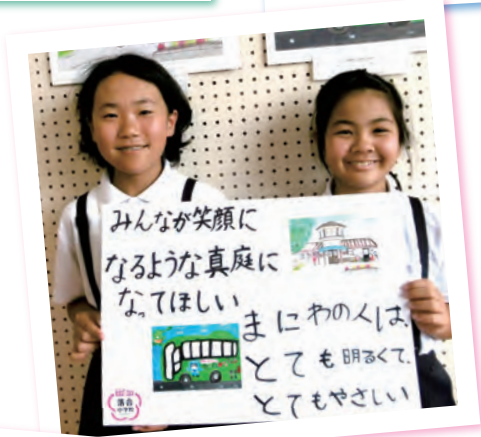 みんなが笑顔に
なるような真庭に
なってほしい
まにわの人は、
とても明るくて、
とてもやさしい
落合
小学校